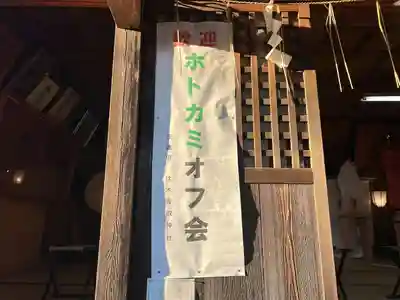 歓迎
ホトカミオフ会